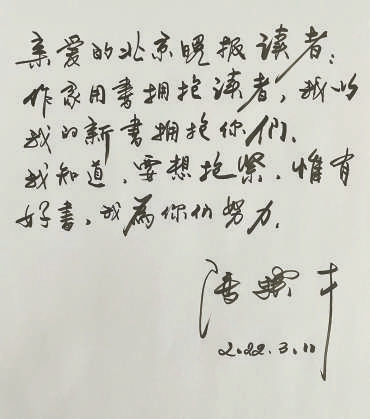 亲爱的北京晚报读者：
作家用書拥抱读者，我以
我的新書拥抱你们、
我知道、要想抱紧、惟有
好書，我為你们努力、
潘耀
2.22.3.11